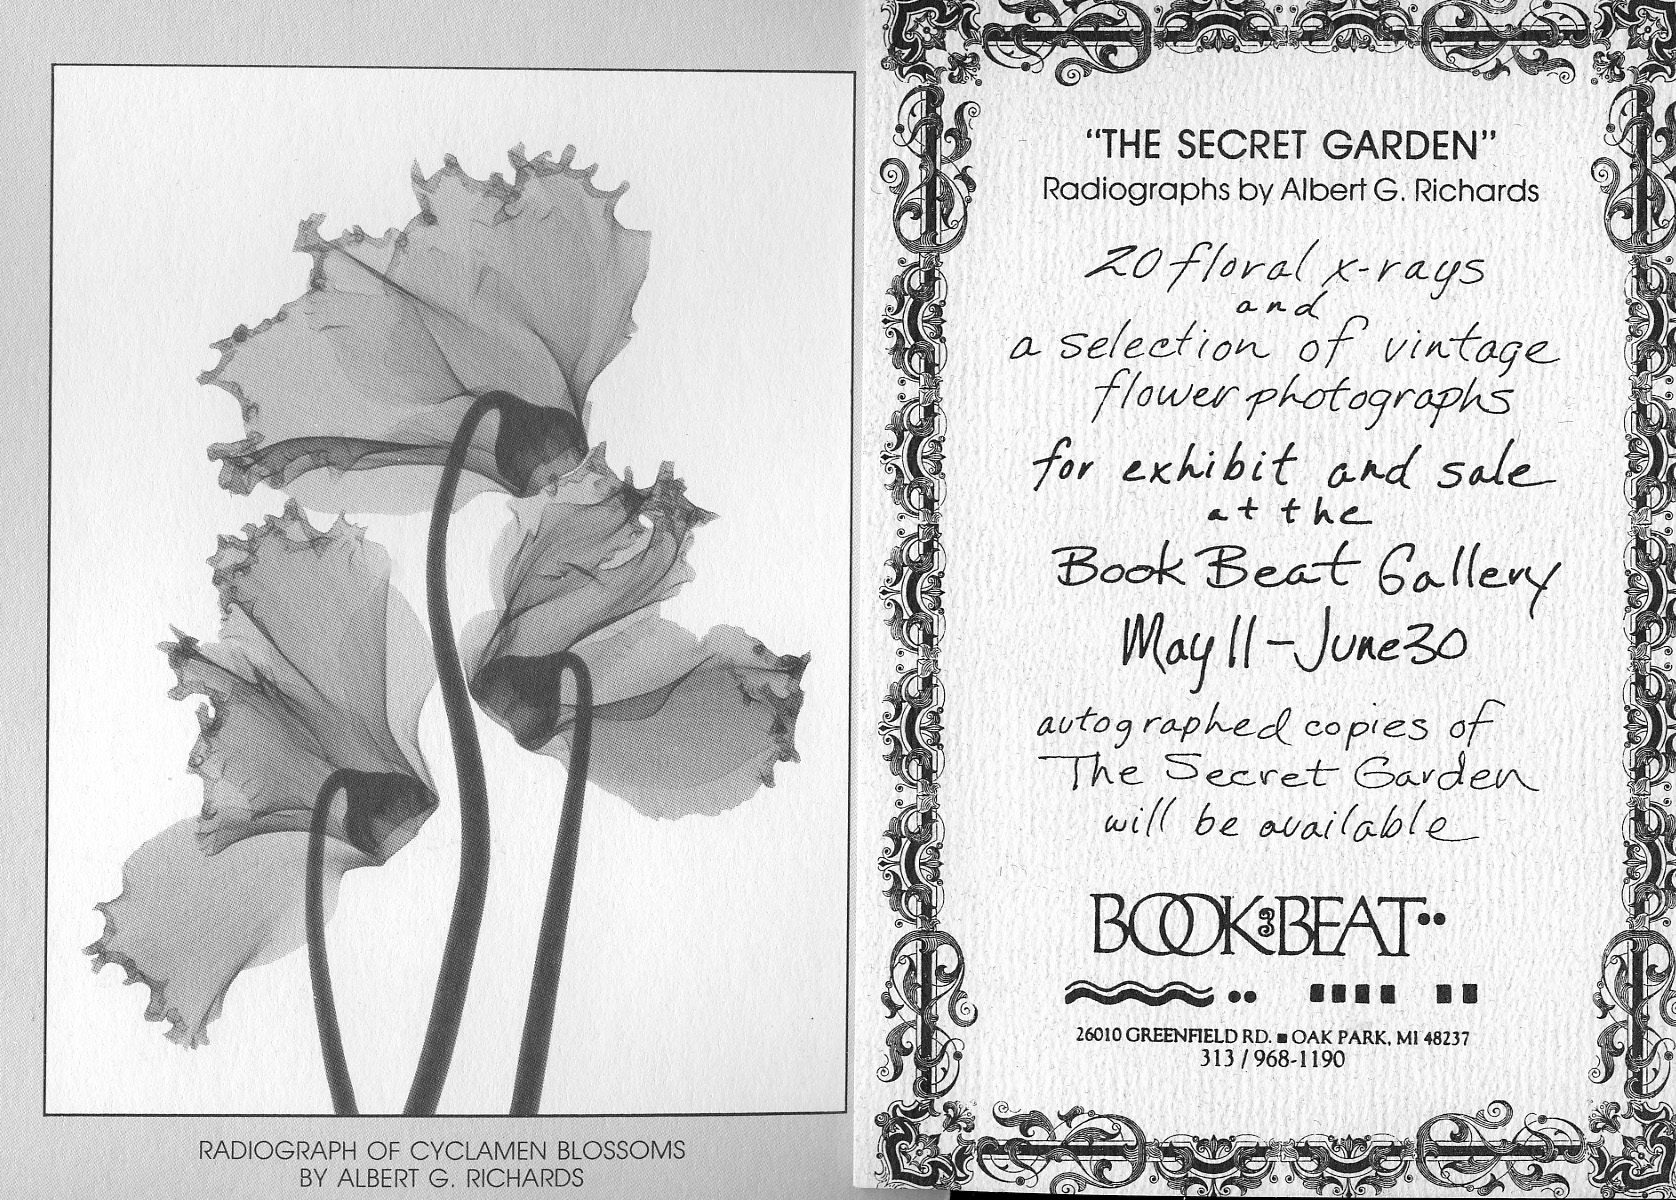 RADIOGRAPH OF CYCLAMEN BLOSSOMS
BY ALBERT G. RICHARDS
"THE SECRET GARDEN"
Radiographs by Albert G. Richards
20 floral x-rays
and
a selection of vintage
flower photographs
for exhibit and sale
at the
Book Beat Gallery
May 11 - June 30
autographed copies of
The Secret Garden
will be available
BOOK BEAT
26010 GREENFIELD RD. ■ OAK PARK, MI 48237
313 / 968-1190